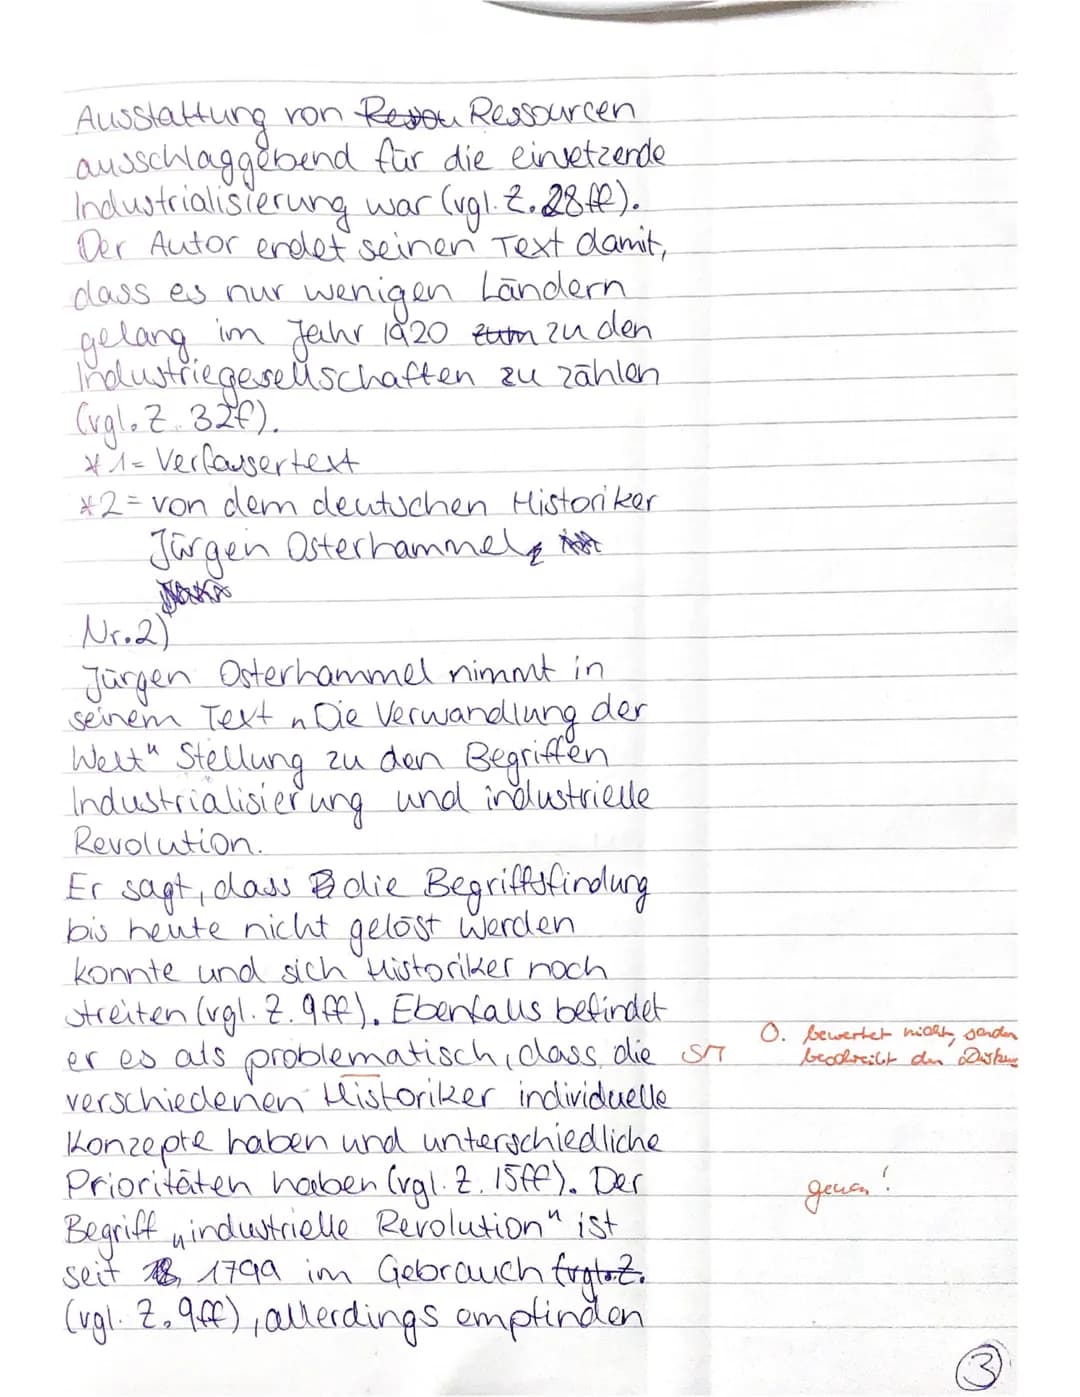 Ausstattung von Ressourcen
ausschlaggebend für die einsetzende
Industrialisierung war (vgl. Z. 28ff).
Der Autor endet seinen Text damit,
dass es nur wenigen Ländern
gelang im Jahr 1920 zum zu den
Industriegesellschaften zu zählen
(vgl. Z. 32f).
*1= Verfassertext
*2= von dem deutschen Historiker
Jürgen Osterhammel
Nr.2)
Jürgen Osterhammel nimmt in
seinem Text „Die Verwandlung der
Welt" Stellung zu den Begriffen
Industrialisierung und industrielle
Revolution.
Er sagt, dass die Begriffsfindung
bis heute nicht gelöst werden
konnte und sich Historiker noch
streiten (vgl. Z. 9ff). Ebenfalls befindet
er es als problematisch, dass die
O. bewertet nicht, sondern
beschreibt den Diskurs
verschiedenen Historiker individuelle
Konzepte haben und unterschiedliche
Prioritäten haben (vgl. Z. 15ff). Der
genau!
Begriff „industrielle Revolution" ist
seit 1799 im Gebrauch (vgl. Z.
(vgl. Z. 9ff), allerdings empfinden
3